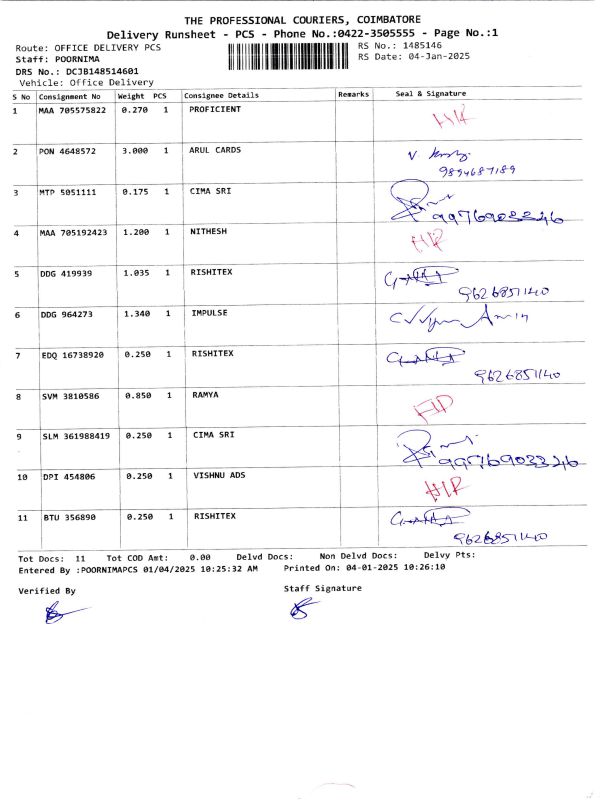 THE PROFESSIONAL COURIERS, COIMBATORE
Delivery Runsheet - PCS - Phone No.:0422-3505555 - Page No.:1
Route: OFFICE DELIVERY PCS
RS No.: 1485146
Staff: POORNIMA
RS Date: 04-Jan-2025
DRS No.: DCJB148514601
Vehicle: Office Delivery
S No Consignment No Weight PCS Consignee Details Remarks Seal & Signature
1 MAA 705575822 0.270 1 PROFICIENT
2 PON 4648572 3.000 1 ARUL CARDS
9894687189
3 MTP 5051111 0.175 1 CIMA SRI
9976903346
4 MAA 705192423 1.200 1 NITHESH
5 DDG 419939 1.035 1 RISHITEX
9626851140
6 DDG 964273 1.340 1 IMPULSE
7 EDQ 16738920 0.250 1 RISHITEX
9626851140
8 SVM 3810586 0.850 1 RAMYA
9 SLM 361988419 0.250 1 CIMA SRI
9976903346
10 DPI 454806 0.250 1 VISHNU ADS
11 BTU 356890 0.250 1 RISHITEX
9626851140
Tot Docs: 11 Tot COD Amt: 0.00 Delvd Docs: Non Delvd Docs: Delvy Pts:
Entered By :POORNIMAPCS 01/04/2025 10:25:32 AM Printed On: 04-01-2025 10:26:10
Verified By
Staff Signature